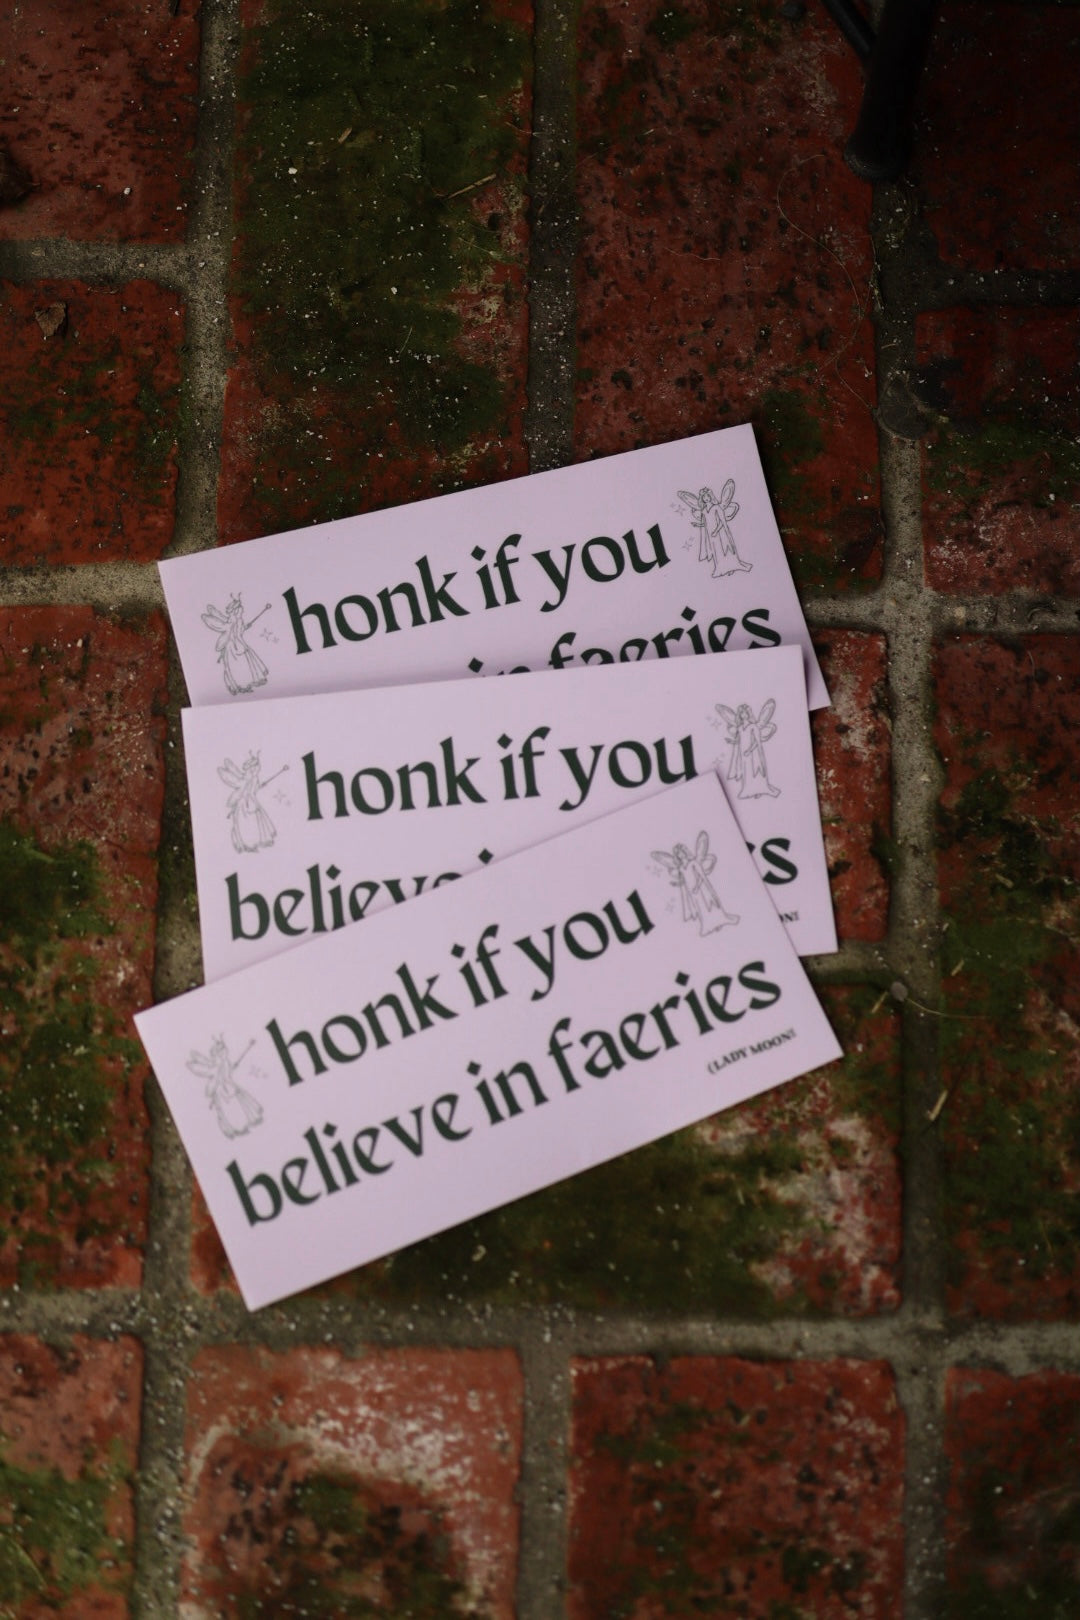 honk if you
in faeries
honk if you
believe
honk if you
believe in faeries
(LADY MOON)